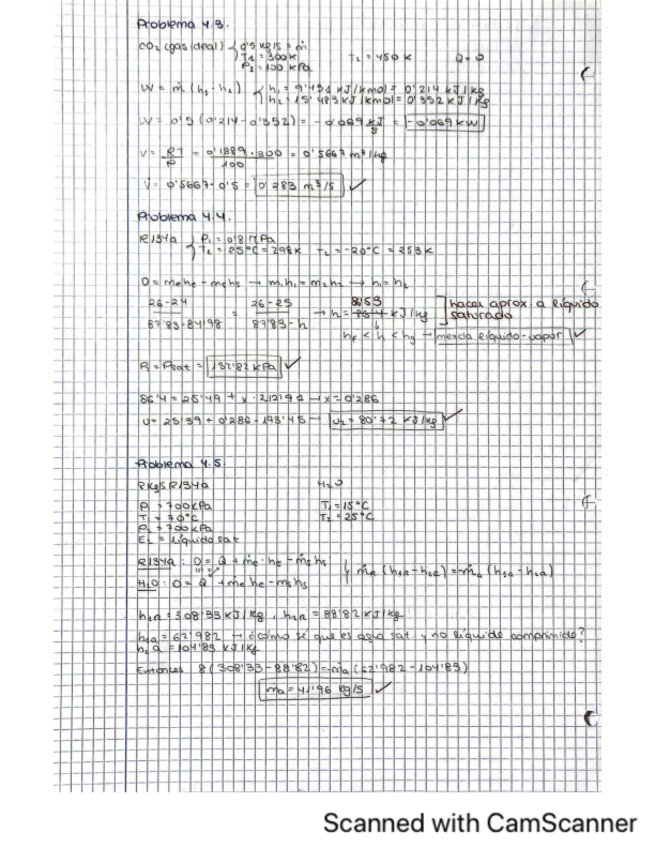 Problema 4.3.
CO2 (gas ideal) { 0'5 kg/s = ṁ
T1 = 300K T2 = 450 K Q = 0
P1 = 100 kPa
W = ṁ (h1 - h2) { h1 = 9'431 kJ/kmol = 0'214 kJ/kg
h2 = 15'483 kJ/kmol = 0'352 kJ/kg
W = 0'5 (0'214 - 0'352) = - 0'069 kJ/s = - 0'069 kW
V = RT/P = 0'1889 · 300/100 = 0'5667 m³/kg
V̇ = 0'5667 · 0'5 = 0'283 m³/s ✓
Problema 4.4.
R134a { P1 = 0'8 MPa
T1 = 25°C = 298K T2 = -20°C = 253K
0 = mehe - mshs → m1h1 = m2h2 → h1 = h2
26-24/87'83-84'98 = 26-25/87'83-h → h = kJ/kg
hacer aprox. a líquido
saturado
hf < h < hg → mezcla líquido-vapor ✓
P2 = Psat = 132'82 kPa ✓
86'4 = 25'49 + x · 212'91 → x = 0'286
u = 25'39 + 0'286 · 193'45 → u2 = 80'72 kJ/kg ✓
Problema 4.5.
R134a H2O
P1 = 700kPa T1 = 15°C
T1 = 70°C T2 = 25°C
P2 = 700kPa
E2 = líquido sat
R134a : 0 = Q + ṁe · he - ṁs hs
H2O : 0 = Q + ṁe he - ṁs hs
h1R = 308'33 kJ/kg , h2R = 88'82 kJ/kg
h1a = 62'982 → ¿cómo sé que es agua sat y no líquido comprimido?
h2a = 104'83 kJ/kg
Entonces 8 (308'33 - 88'82) = -ṁa (62'982 - 104'83)
ṁa = 41'96 kg/s ✓
Scanned with CamScanner